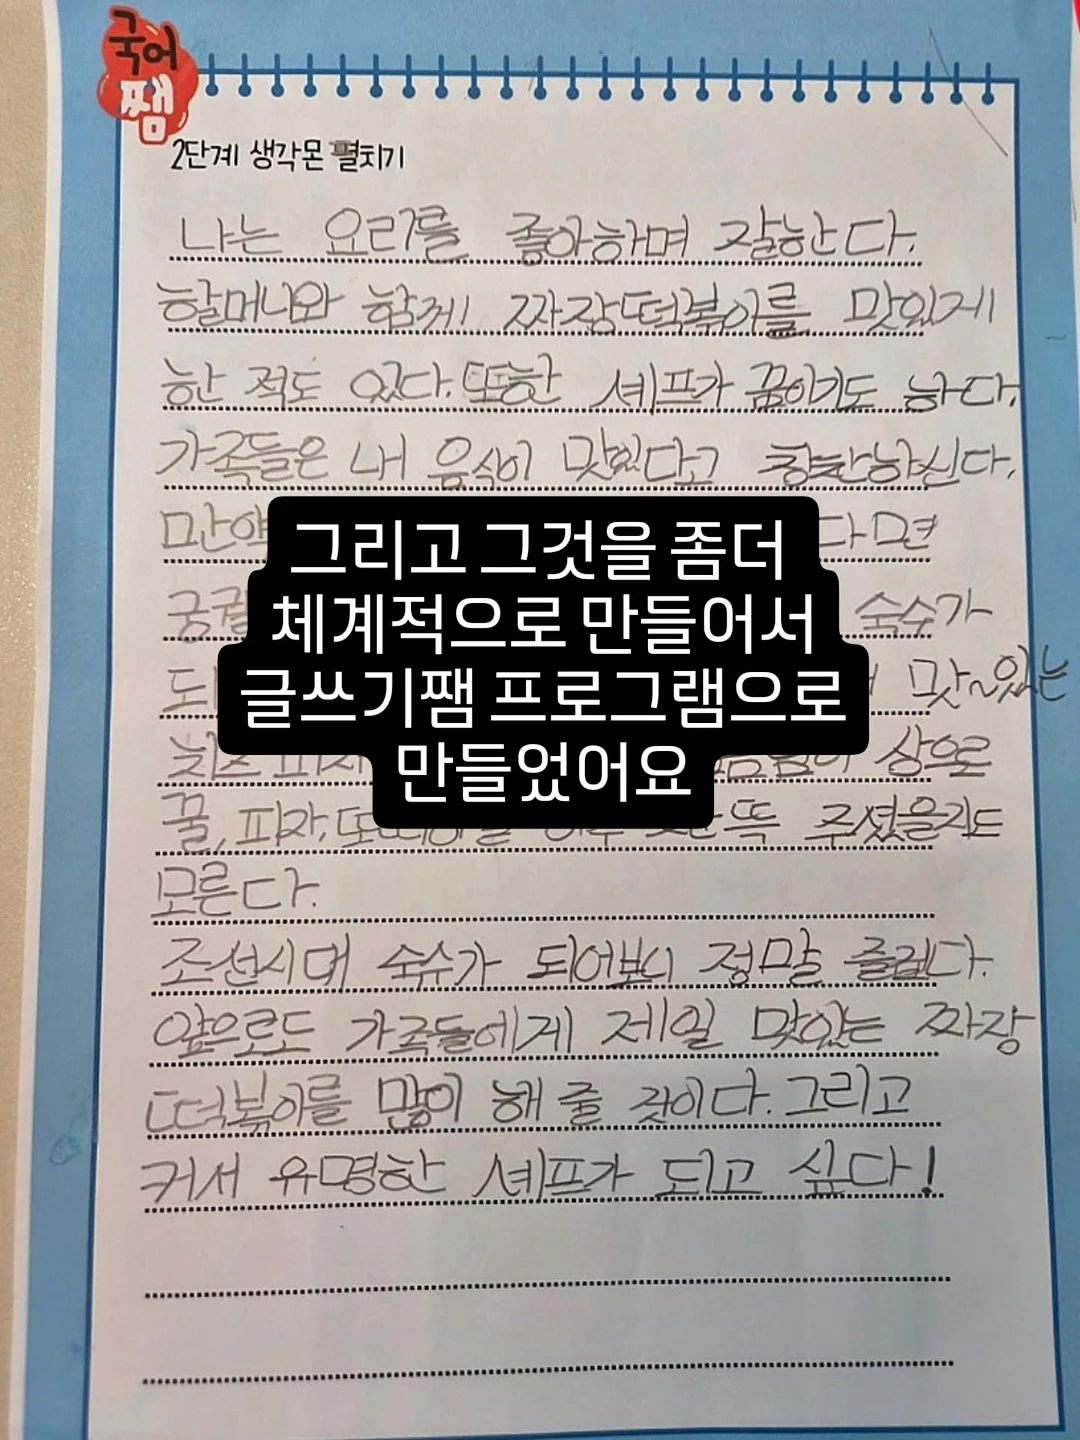 국어
쨈
2단계 생각몬 펼치기
나는 요리를 좋아하며 잘한다.
할머니와 함께 짜장떡볶이를 맛있게
한 적도 있다. 또한 셰프가 꿈이기도 하다.
가족들은 내 음식이 맛있다고 칭찬하신다.
만약 다면
궁궐 숙수가
맛~있는
치즈 피자 상으로
꿀, 피자, 또 듬뿍 주셨을지도
모른다.
조선시대 숙수가 되어보니 정말 즐겁다.
앞으로도 가족들에게 제일 맛있는 짜장
떡볶이를 많이 해 줄 것이다. 그리고
커서 유명한 셰프가 되고 싶다!
그리고 그것을 좀더
체계적으로 만들어서
글쓰기쨈 프로그램으로
만들었어요